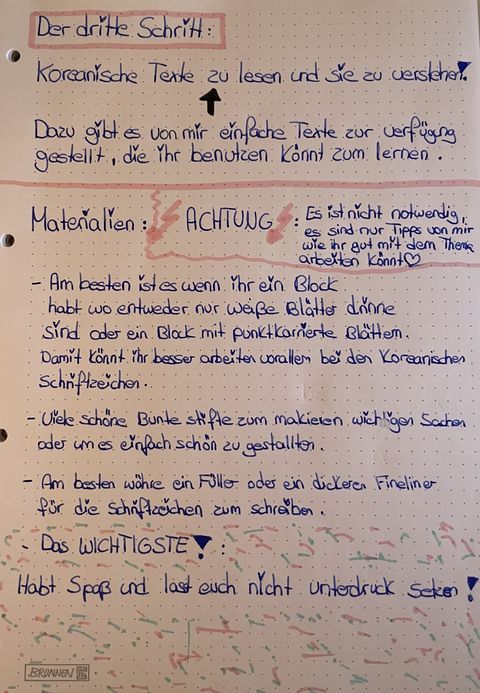 Der dritte Schritt:
Koreanische Texte zu lesen und sie zu verstehen!
Dazu gibt es von mir einfache Texte zur verfügung
gestellt, die ihr benutzen könnt zum lernen.
Materialien:
ACHTUNG:
Es ist nicht notwendig,
es sind nur Tipps von mir
wie ihr gut mit dem Thema
arbeiten könnt♡
- Am besten ist es wenn ihr ein Block
habt wo entweder nur weiße Blätter drinne
sind oder ein Block mit punktkarrierte Blättern.
Damit könnt ihr besser arbeiten vorallem bei den Koreanischen
Schriftzeichen.
- Viele schöne Bunte stifte zum makieren wichtigen Sachen
oder um es einfach schön zu gestallten.
- Am besten währe ein Füller oder ein dickeren Fineliner
für die Schriftzeichen zum schreiben.
- Das WICHTIGSTE!:
Habt Spaß und last euch nicht unterdruck setzen!
BRUNNEN